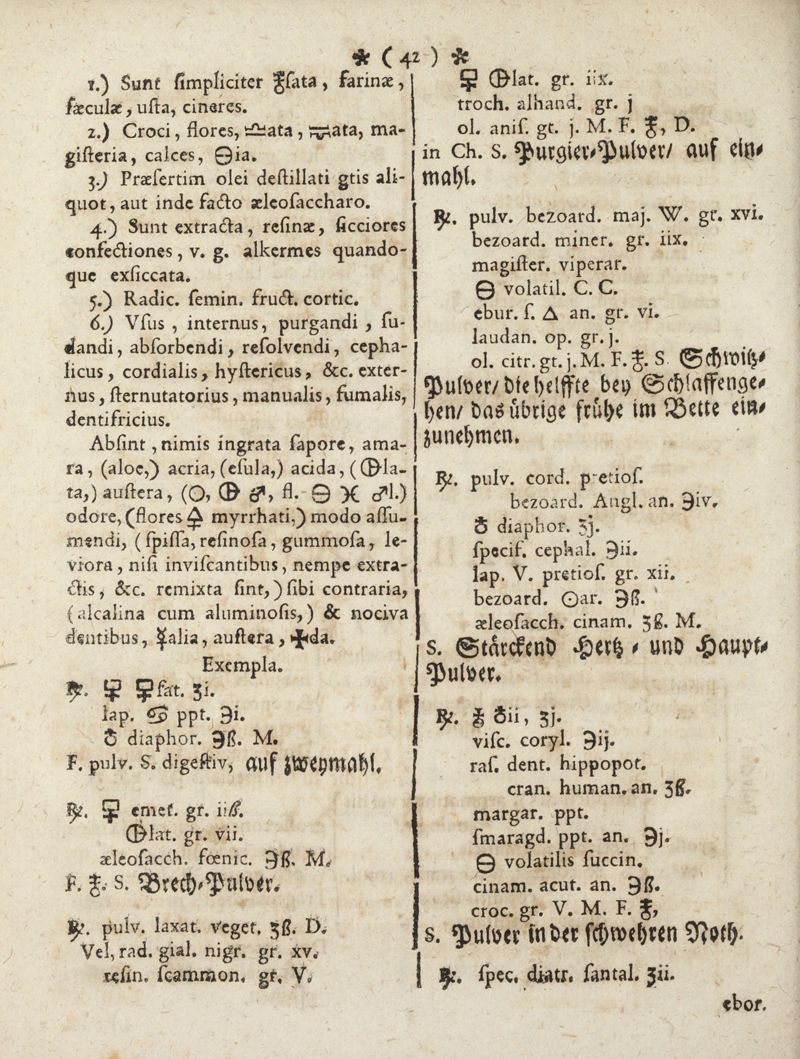 * ( 42 ) *
1.) Sunt ſimpliciter ſata, farinæ,
fæculæ, uſta, cineres.
2.) Croci, flores, ♎ata, ata, ma-
giſteria, calces, 🜔ia.
3.) Præſertim olei deſtillati gtis ali-
quot, aut inde facto ælеoſaccharo.
4.) Sunt extracta, reſinæ, ſicciores
confectiones, v. g. alkermes quando-
que exſiccata.
5.) Radic. ſemin. fruct. cortic.
6.) Vſus, internus, purgandi, ſu-
dandi, abſorbendi, reſolvendi, cepha-
licus, cordialis, hyſtericus, &c. exter-
nus, ſternutatorius, manualis, fumalis,
dentifricius.
Abſint, nimis ingrata ſapore, ama-
ra, (aloe,) acria, (eſula,) acida, (la-
ta,) auſtera, (🜔 ♓ ♂l.)
odore, (flores 🜍 myrrhati,) modo aſſu-
mendi, (ſpiſſa, reſinoſa, gummoſa, le-
viora, niſi inviſcantibus, nempe extra-
ctis, &c. remixta ſint,) ſibi contraria,
(alcalina cum aluminoſis,) & nociva
dentibus, alia, auſtera, da.
Exempla.
℞. fat. ʒi.
lap. ♋ ppt. ℈i.
diaphor. ℈ß. M.
F. pulv. S. digeſtiv, auf zweymahl.
℞. emet. gr. iiß.
lat. gr. vii.
æleoſacch. fœnic. ℈ß. M.
F. S. Brech-Pulver.
℞. pulv. laxat. veget. ʒß. D.
Vel, rad. gial. nigr. gr. xv.
reſin. ſcammon. gr. V.
lat. gr. iix.
troch. alhand. gr. j
ol. aniſ. gt. j. M. F. D.
in Ch. S. Purgier-Pulver/ auf ein-
mahl.
℞. pulv. bezoard. maj. W. gr. xvi.
bezoard. miner. gr. iix.
magiſter. viperar.
🜔 volatil. C. C.
ebur. ſ. △ an. gr. vi.
laudan. op. gr. j.
ol. citr. gt. j. M. F. S. Schwitz-
Pulver/ die helffte bey Schlaffenge-
hen/ das übrige frühe im Bette ein-
zunehmen.
℞. pulv. cord. pretioſ.
bezoard. Angl. an. ℈iv.
diaphor. ʒj.
ſpecif. cephal. ℈ii.
lap. V. pretioſ. gr. xii.
bezoard. ☉ar. ℈ß.
æleoſacch. cinam. ʒß. M.
S. Stärckend Hertz - und Haupt-
Pulver.
℞. ii, ʒj.
viſc. coryl. ℈ij.
raſ. dent. hippopot.
cran. human. an. ʒß.
margar. ppt.
ſmaragd. ppt. an. ℈j.
🜔 volatilis ſuccin.
cinam. acut. an. ℈ß.
croc. gr. V. M. F.
S. Pulver in der ſchwehren Noth.
℞. ſpec. diatr. ſantal. ʒii.
ebor.